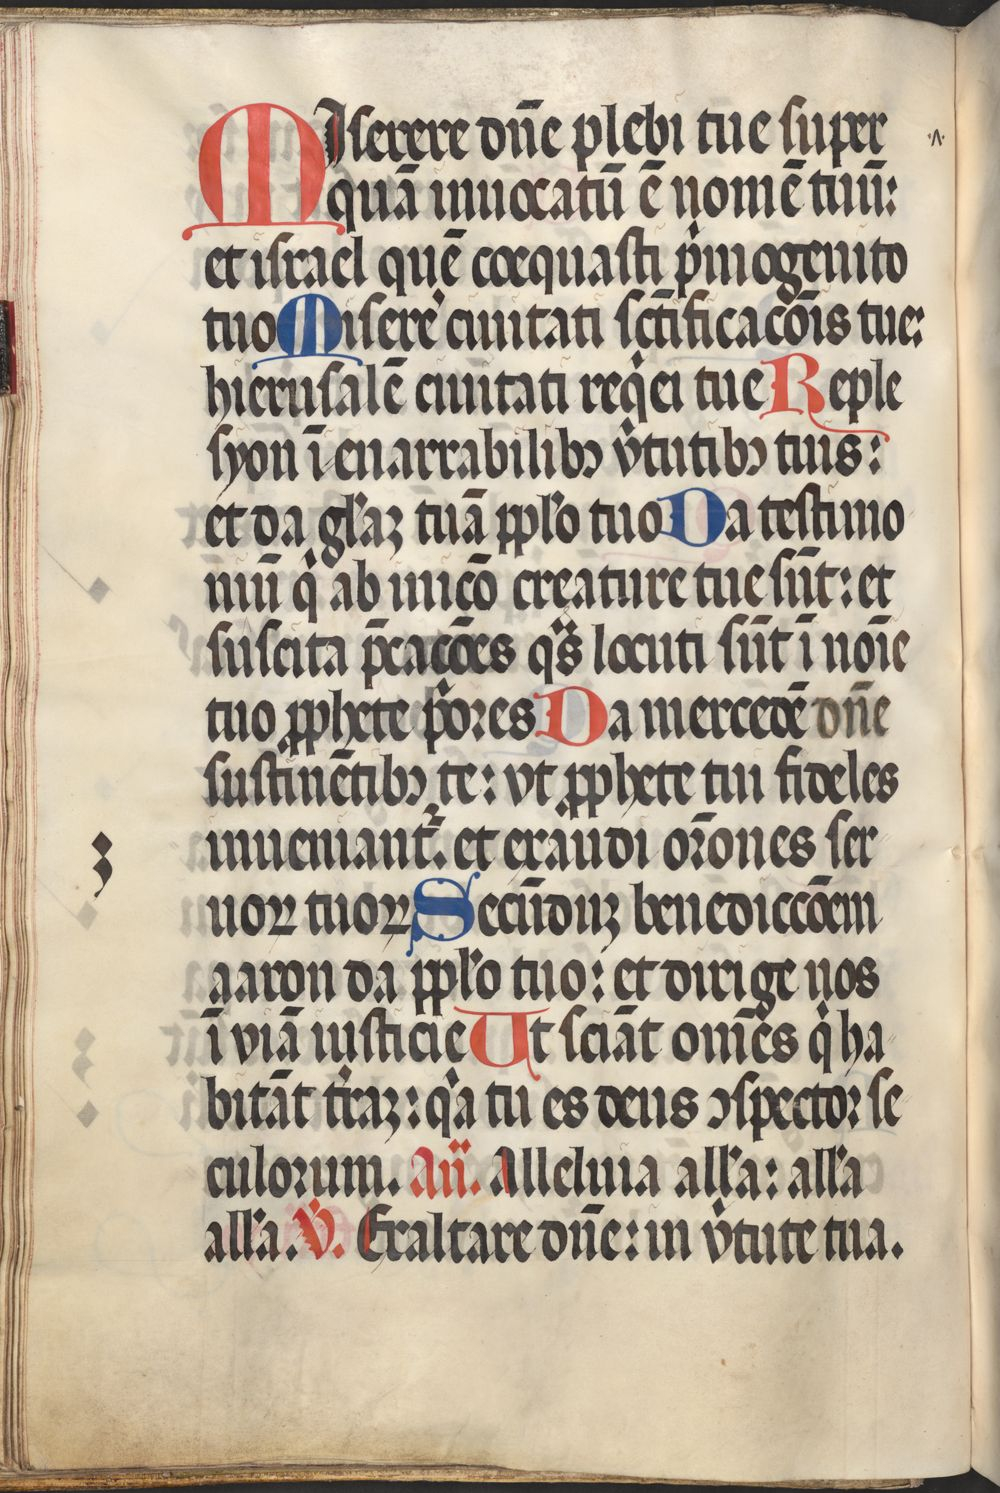 MIserere dn̄e plebi tue super
quā inuocatū ē nomē tuū:
et israel quē coequasti pͥmogenito
tuo Miserer̉e ciuitati sct̄ificacōis tue:
hierusalē ciuitati reqͥei tue Reple
syon ī enarrabilibꝰ v̉tutibꝰ tuis:
et da gl̉aꝫ tuā ppl̉o tuo Da testimo
niū qͥ ab inicō creature tue sūt: et
suscita p̄cacōes qͣs locuti sūt ī noīe
tuo ꝓphete pͥores Da mercedē dn̄e
sustinētibꝰ te: vt ꝓphete tui fideles
inueniant᷑. et exaudi or̄ones ser
uoꝝ tuoꝝ Secūduꝫ benediccōem
aaron da ppl̉o tuo: et dirige nos
ī viā iusticie Ut sciāt om̄es qͥ ha
bitāt t̉raꝫ: qͥa tu es deus ꝯspector se
culorum. An̄. Alleluia all̉a: all̉a
all̉a. V̉. Exaltare dn̄e: in v̉tute tua.